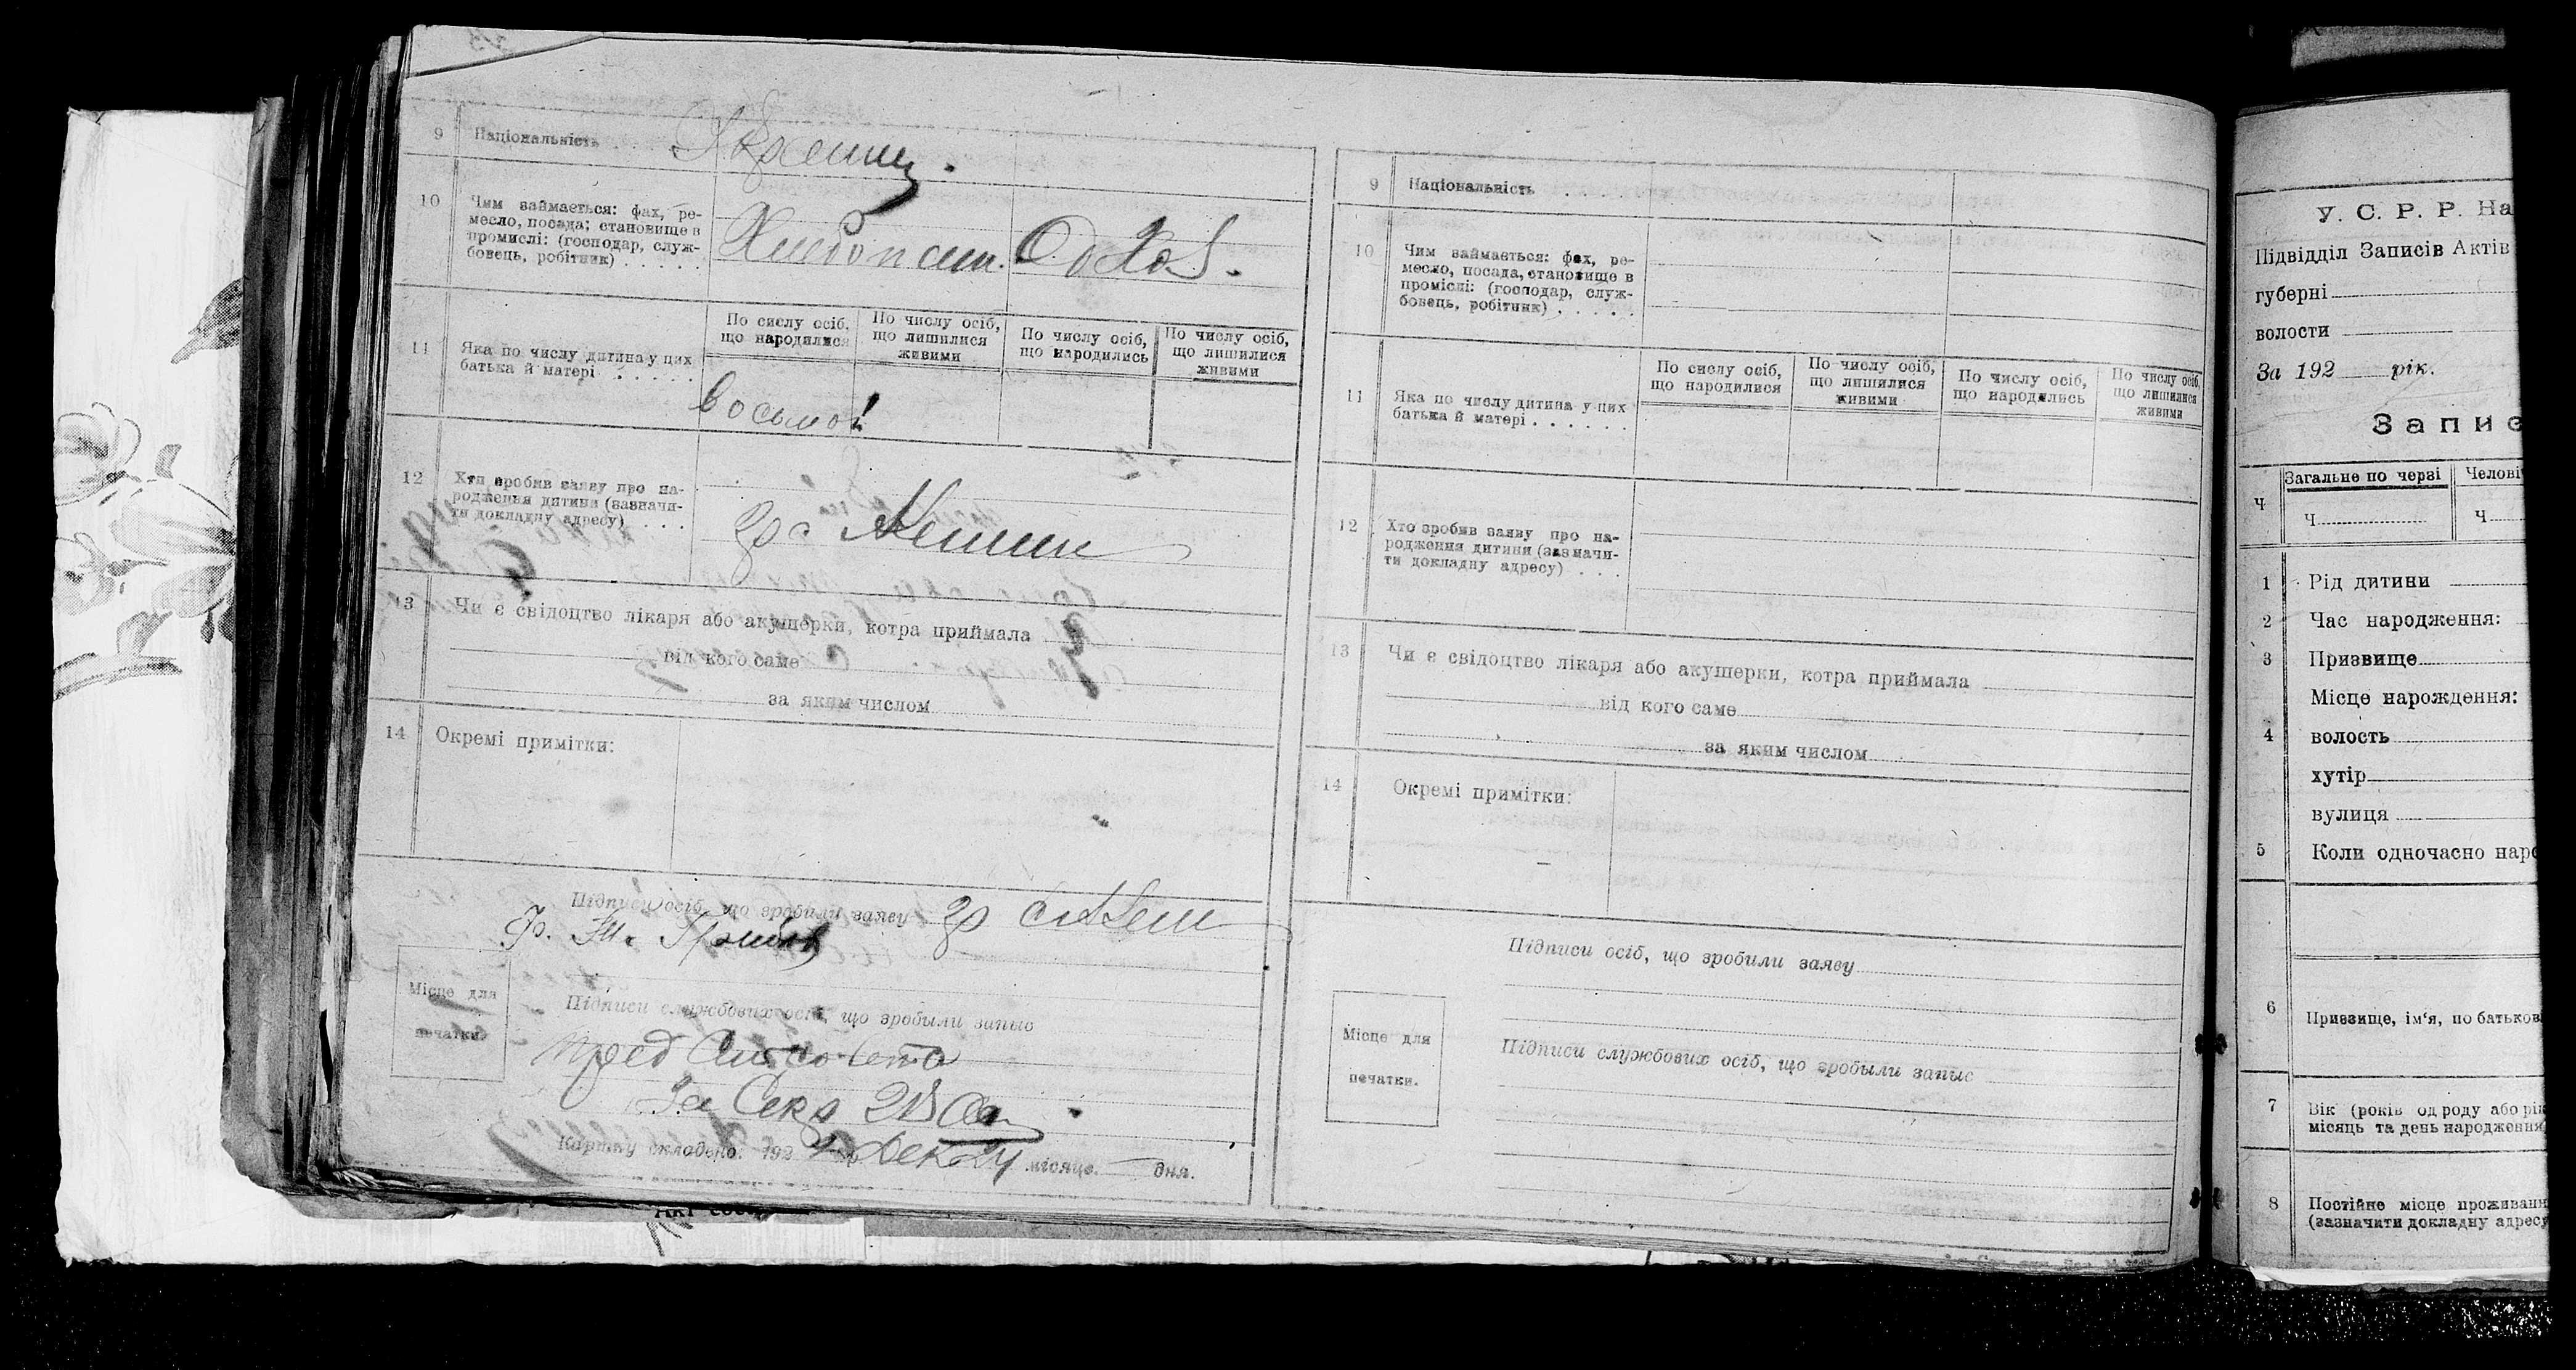 9 Національність . . . . Украинц.
10 Чим займається: фах, ре-
месло, посада; становище в
промислі: (господар, служ-
бовець, робітник) . . . . .
Хлебопаш. Дом Хоз.
11 Яка по числу дитина у цих
батька й матері . . . . .
По сислу осіб,
що народилися
По числу осіб,
що лишилися
живими
По числу осіб,
що народились
По числу осіб,
що лишилися
живими
восьмої
12 Хто зробив заяву про на-
родження дитини (зазначи-
ти докладну адресу) . . .
гр с
13 Чи є свідоцтво лікаря або акушерки, котра приймала
від кого саме
за яким числом
14 Окремі примітки:
Підписи осіб, що зробили заяву гр
Місце для
печатки.
Підписи службових осіб, що зробыли запис
Пред
За Секр
Картку складено: 192 Дек 24 місяця. — дня.
9 Національність . . . .
10 Чим займається: фах, ре-
месло, посада, становище в
промислі: (господар, служ-
бовець, робітник) . . . . .
11 Яка по числу дитина у цих
батька й матері . . . . . .
По сислу осіб,
що народилися
По числу осіб,
що лишилися
живими
По числу осіб,
що народились
По числу осіб,
що лишилися
живими
12 Хто зробив заяву про на-
родження дитини (зазначи-
ти докладну адресу) . . .
13 Чи є свідоцтво лікаря або акушерки, котра приймала
від кого саме
за яким числом
14 Окремі примітки:
Підписи осіб, що зробили заяву
Місце для
печатки.
Підписи службових осіб, що зробыли запис
У. С. Р. Р. На
Підвідділ Записів Актів
губерні
волости
За 192 рік.
Запис
Ч
Загальне по черві
Ч
Челові
Ч
1 Рід дитини
2 Час народження:
3 Призвище
Місце нарождення:
4 волость
хутір
вулиця
5 Коли одночасно наро
6 Призвище, ім'я, по батьков
7 Вік (років од роду або рік
місяць та день народження
8 Постійне місце проживанн
(зазначити докладну адресу